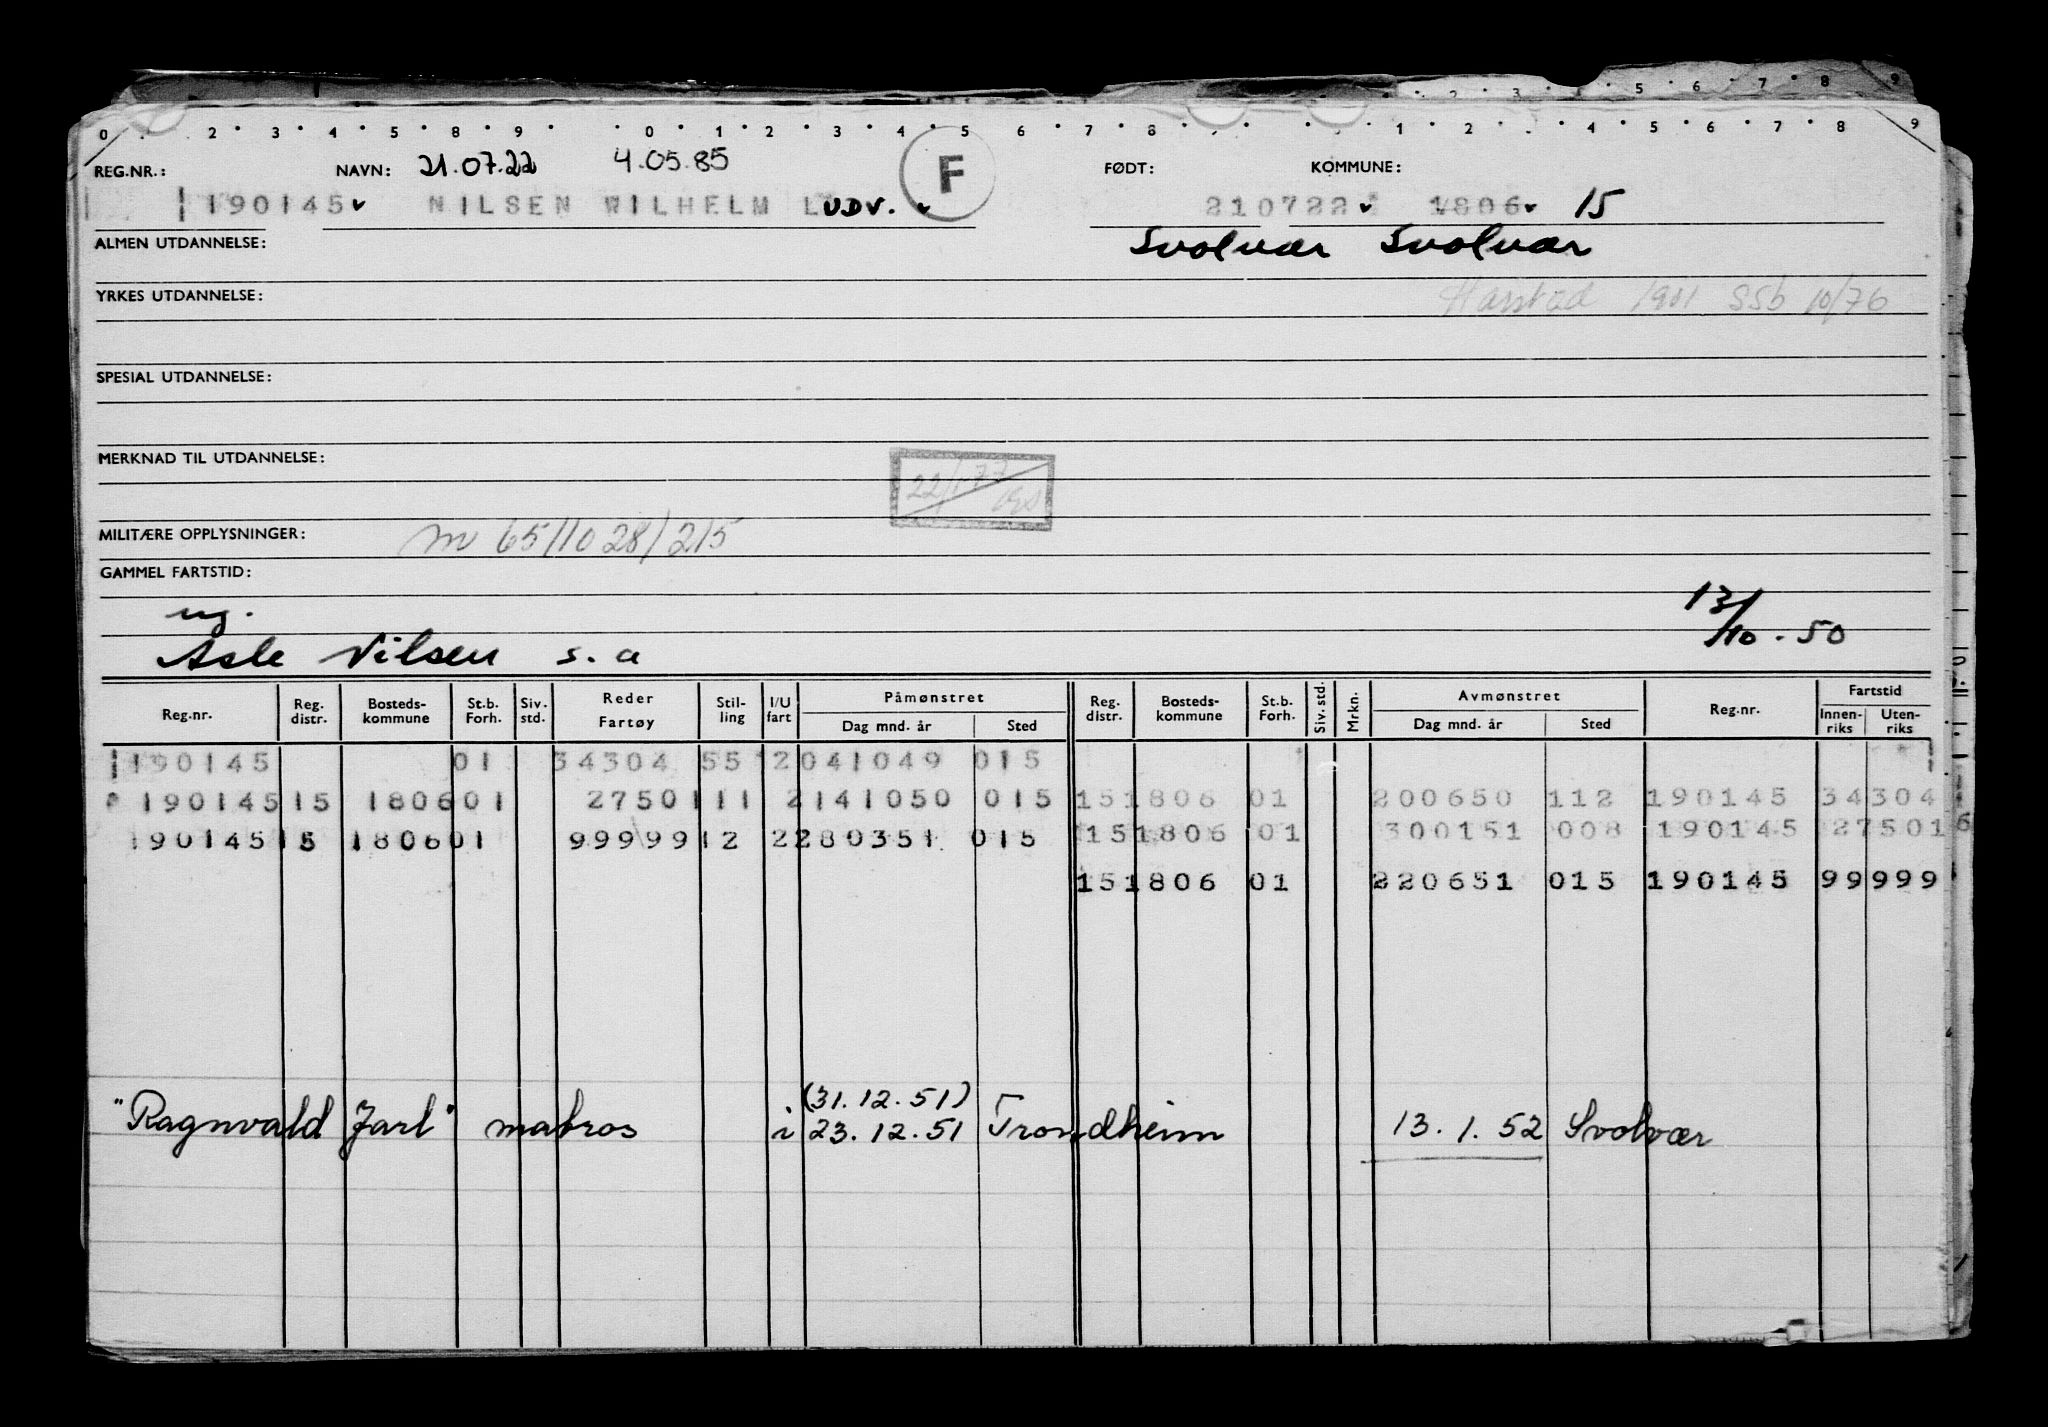 0 2 3 4 5 8 9 0 1 2 3 4 5 6 7 8 1 2 4 5 6 7 8 9
REG.NR.: NAVN: 21.07.22 4.05.85 F FØDT: KOMMUNE:
190145 NILSEN WILHELM L UDV. 210722 1806 15
ALMEN UTDANNELSE: Svolvær Svolvær
YRKES UTDANNELSE: Harstad 1901 SSb 10/76
SPESIAL UTDANNELSE:
MERKNAD TIL UTDANNELSE:
22/1-77
MILITÆRE OPPLYSNINGER: m 65/1028/215
GAMMEL FARTSTID:
ug. 13/10-50
Asle Nilsen s.a
Reg.nr. Reg. distr. Bosteds-kommune St.b. Forh. Siv. std. Reder Fartøy Stil-ling I/U fart Påmønstret Dag mnd. år Sted Reg. distr. Bosteds-kommune St.b. Forh. Siv. std. Mrkn. Avmønstret Dag mnd. år Sted Reg.nr. Fartstid Innen-riks Uten-riks
190145 01 34304 55 2 041049 015
190145 15 1806 01 2750 111 2 141050 015 15 1806 01 200650 112 190145 34304
190145 15 1806 01 99999 12 2 280351 015 15 1806 01 300151 008 190145 27501 6
15 1806 01 220651 015 190145 99999
(31.12.51)
"Ragnvald Jarl" matros i 23.12.51 Trondheim 13.1.52 Svolvær